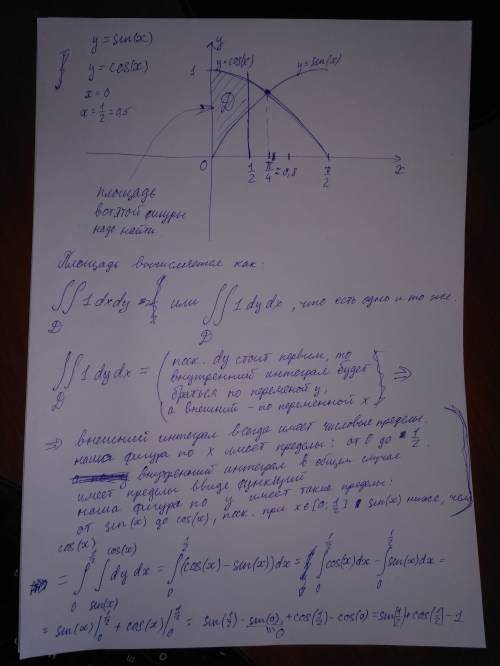 y = sin(x)
y = cos(x)
x = 0
x = 1/2 = 0,5
y
y=cos(x)
y=sin(x)
1
D
0
1/2
π/4
≈ 0,8
π/2
x
площадь
вот этой фигуры
надо найти
Площадь вычисляется как:
∬ 1 dxdy или ∬ 1 dy dx, что есть одно и то же.
D D
∬ 1 dy dx = (поск. dy стоит первым, то
D внутренний интеграл будет
браться по переменой y,
а внешний – по переменной x) ⇒
⇒ внешний интеграл всегда имеет числовые пределы.
наша фигура по x имеет пределы: от 0 до 1/2.
внутренний интеграл в общем случае
имеет пределы ввиде функций
наша фигура по y имеет такие пределы:
от sin(x) до cos(x), поск. при x∈[0; 1/2] sin(x) ниже, чем
cos(x)
= ∫₀^{1/2} ∫_{sin(x)}^{cos(x)} dy dx = ∫₀^{1/2} (cos(x) − sin(x))dx = ∫₀^{1/2} cos(x)dx − ∫₀^{1/2} sin(x)dx =
= sin(x)|₀^{1/2} + cos(x)|₀^{1/2} = sin(1/2) − sin(0) + cos(1/2) − cos(0) = sin(1/2) + cos(1/2) − 1
0